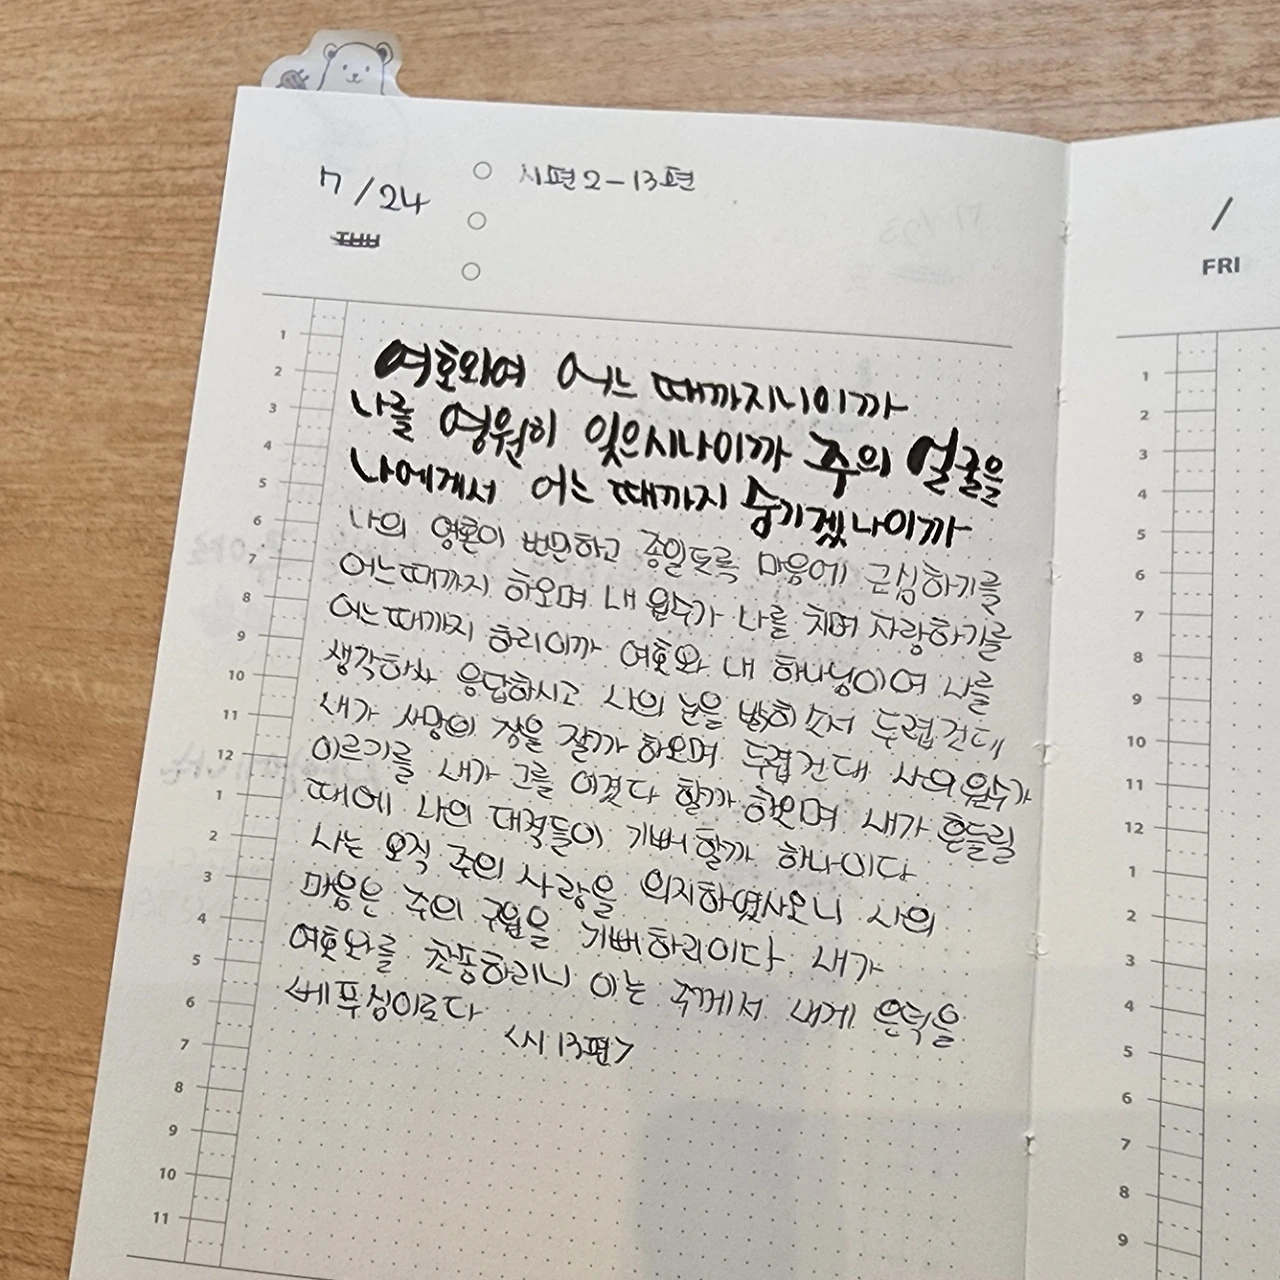 7/24
시편2-13편
THU
여호와여 어느 때까지니이까
나를 영원히 잊으시나이까 주의 얼굴을
나에게서 어느 때까지 숨기겠나이까
나의 영혼이 번민하고 종일토록 마음에 근심하기를
어느때까지 하오며 내 원수가 나를 치며 자랑하기를
어느때까지 하리이까 여호와 내 하나님이여 나를
생각하사 응답하시고 나의 눈을 밝히소서 두렵건대
내가 사망의 잠을 잘까 하오며 두렵건대 나의 원수가
이르기를 내가 그를 이겼다 할까 하오며 내가 흔들릴
때에 나의 대적들이 기뻐할까 하나이다
나는 오직 주의 사랑을 의지하였사오니 나의
마음은 주의 구원을 기뻐하리이다 내가
여호와를 찬송하리니 이는 주께서 내게 은덕을
베푸심이로다
<시 13편>
1
2
3
4
5
6
7
8
9
10
11
12
1
2
3
4
5
6
7
8
9
10
11
/
FRI
1
2
3
4
5
6
7
8
9
10
11
12
1
2
3
4
5
6
7
8
9